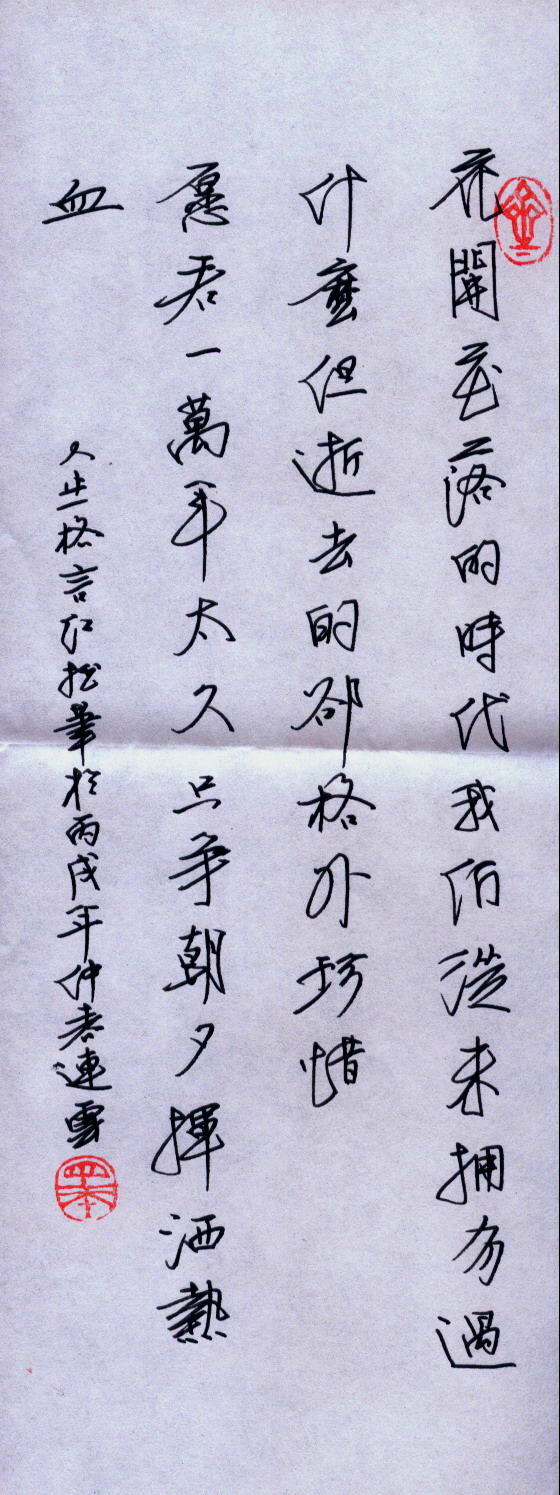 花開花落的時代我们從未拥有過
什麼但逝去的卻格外珍惜
愿君一萬年太久只争朝夕揮洒熱
血
人生格言红松筆於丙戌年仲春連雲